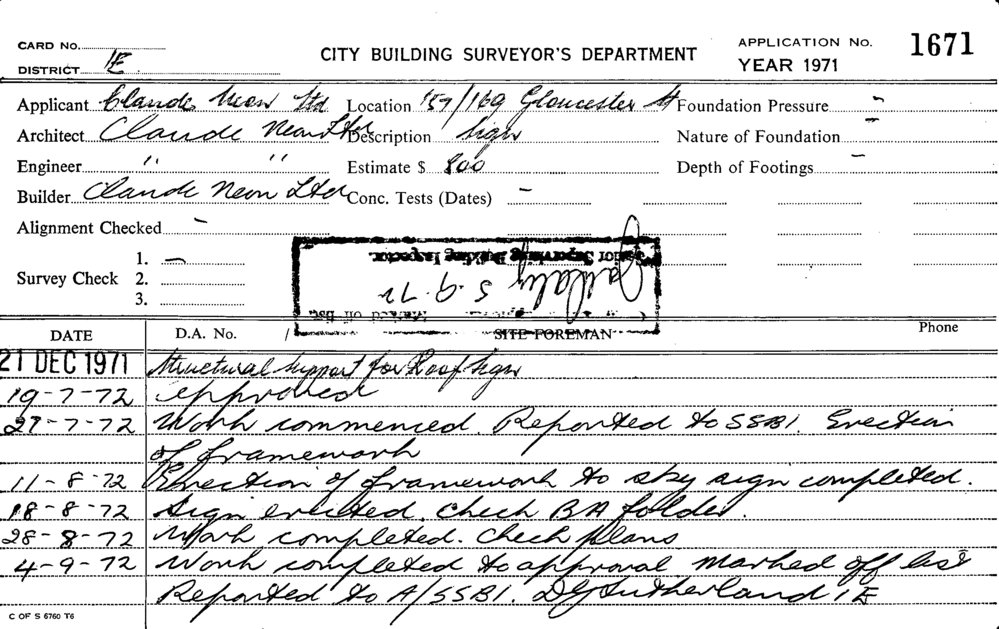 CARD No.
DISTRICT 1E
CITY BUILDING SURVEYOR'S DEPARTMENT
APPLICATION No. 1671
YEAR 1971
Applicant Claude Neon Ltd Location 157/169 Gloucester St Foundation Pressure -
Architect Claude Neon Ltd Description Sign Nature of Foundation -
Engineer " " Estimate $ 800 Depth of Footings -
Builder Claude Neon Ltd Conc. Tests (Dates) -
Alignment Checked -
Survey Check 1. -
2.
3.
Senior Supervising Building Inspector.
5.9.72
Marked off list.
DATE D.A. No. / SITE FOREMAN Phone
21 DEC 1971 Structural support for Roof Sign
19-7-72 approved
27-7-72 Work commenced. Reported to SSBI. Erection
of framework
11-8-72 Erection of framework to sky sign completed.
18-8-72 Sign erected. Check BA folder.
28-8-72 Work completed. Check plans
4-9-72 Work completed to approval marked off list
Reported to A/SSBI. DG Sutherland 1E
C OF S 6760 T6